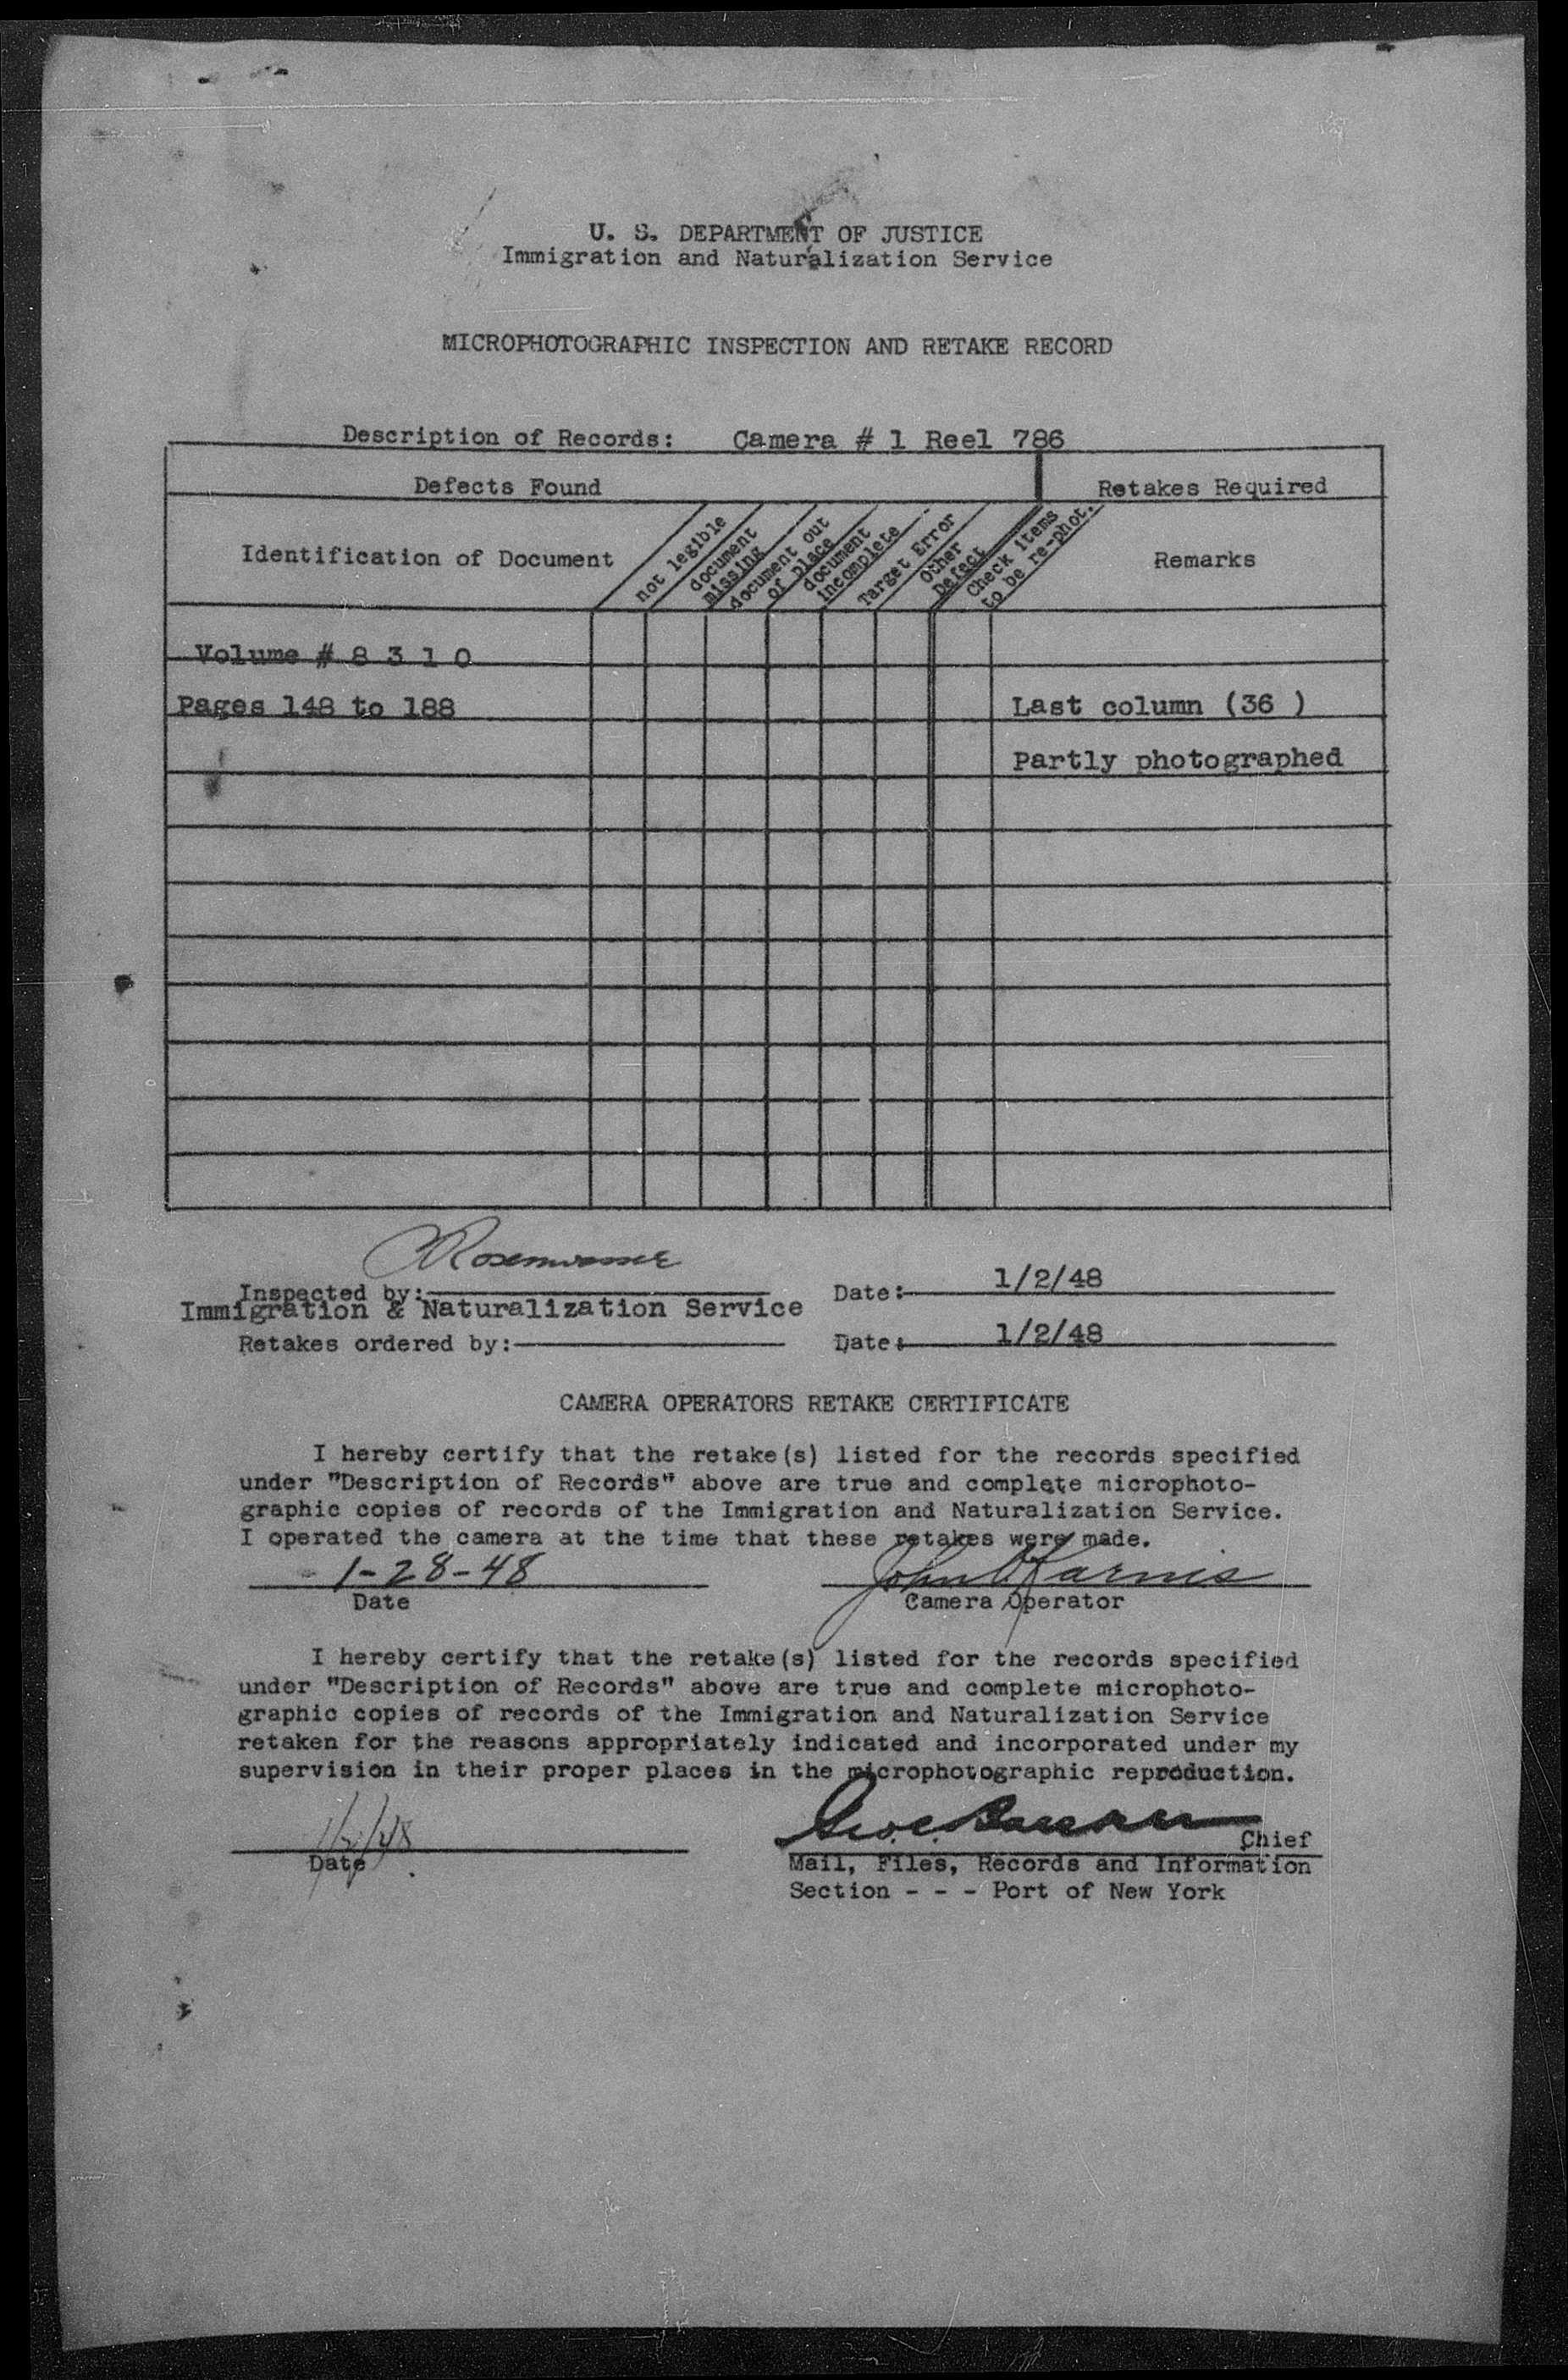 U. S. DEPARTMENT OF JUSTICE
Immigration and Naturalization Service
MICROPHOTOGRAPHIC INSPECTION AND RETAKE RECORD
Description of Records: Camera # 1 Reel 786
Defects Found
Retakes Required
Identification of Document
not legible
document
missing
document out
of place
document
incomplete
Target Error
Other
Defect
Check items
to be re-phot.
Remarks
Volume # 8 3 1 0
Pages 148 to 188
Last column (36 )
Partly photographed
Inspected by:
Date: 1/2/48
Immigration & Naturalization Service
Retakes ordered by:
Date: 1/2/48
CAMERA OPERATORS RETAKE CERTIFICATE
I hereby certify that the retake(s) listed for the records specified
under "Description of Records" above are true and complete microphoto-
graphic copies of records of the Immigration and Naturalization Service.
I operated the camera at the time that these retakes were made.
1-28-48
John
Date
Camera Operator
I hereby certify that the retake(s) listed for the records specified
under "Description of Records" above are true and complete microphoto-
graphic copies of records of the Immigration and Naturalization Service
retaken for the reasons appropriately indicated and incorporated under my
supervision in their proper places in the microphotographic reproduction.
Chief
Date
Mail, Files, Records and Information
Section - - - Port of New York